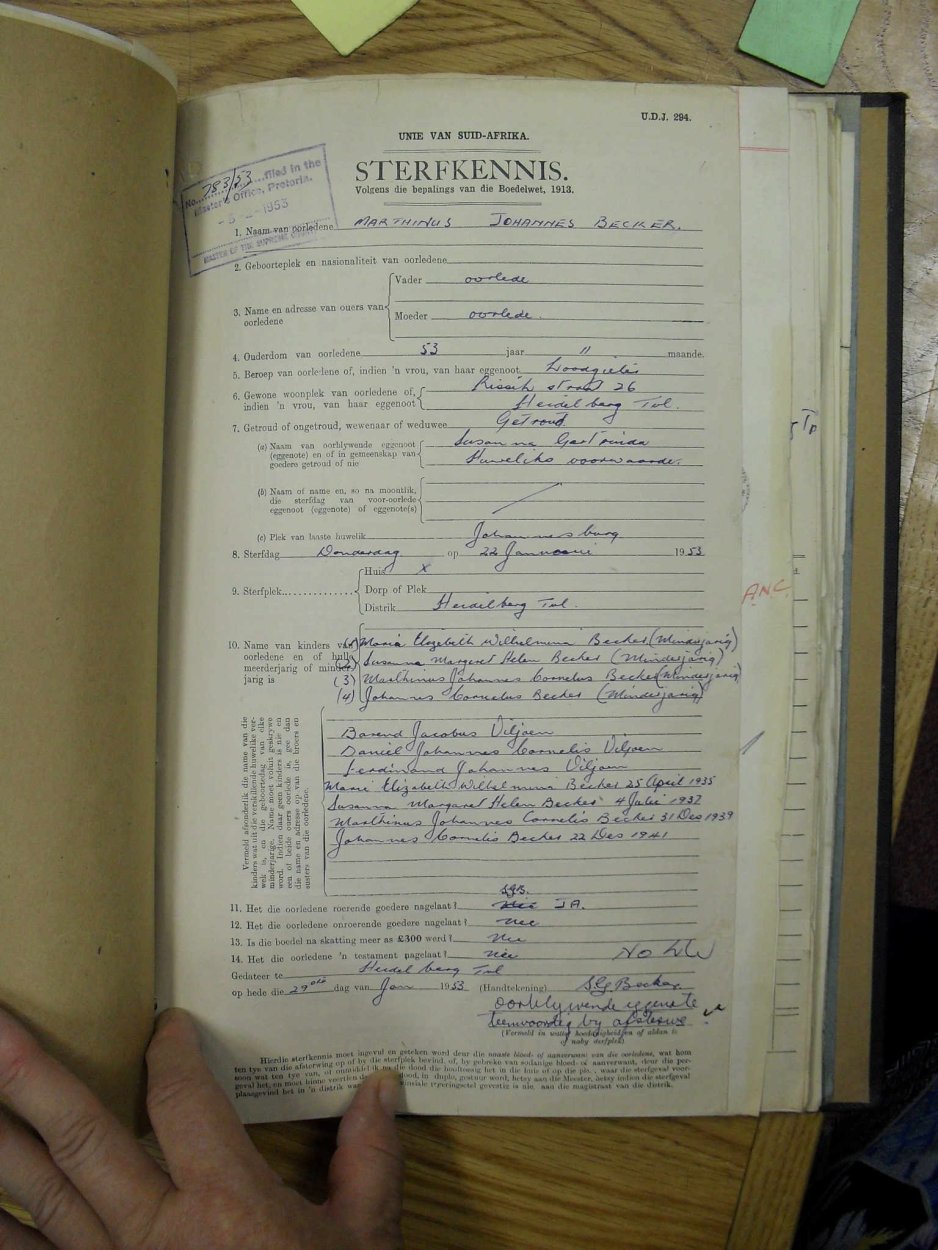 U.D.J. 294.
UNIE VAN SUID-AFRIKA.
STERFKENNIS.
Volgens die bepalings van die Boedelwet, 1913.
No. 783/53 filed in the
Master's Office, Pretoria.
1953
MASTER OF THE SUPREME COURT
1. Naam van oorledene MARTHINUS JOHANNES BECKER.
2. Geboorteplek en nasionaliteit van oorledene
3. Name en adresse van ouers van oorledene
Vader oorlede
Moeder oorlede.
4. Ouderdom van oorledene 53 jaar " maande.
5. Beroep van oorledene of, indien 'n vrou, van haar eggenoot Loodgieter
6. Gewone woonplek van oorledene of, Rissik straat 26
indien 'n vrou, van haar eggenoot Heidelberg Tvl.
7. Getroud of ongetroud, wewenaar of weduwee Getroud.
(a) Naam van oorblywende eggenoot Susanna Gertruida
(eggenote) en of in gemeenskap van Huweliks voorwaarde.
goedere getroud of nie
(b) Naam of name en, so na moontlik,
die sterfdag van voor-oorlede
eggenoot (eggenote) of eggenote(s)
(c) Plek van laaste huwelik Johannesburg
8. Sterfdag Donderdag op 22 Januarie 1953
9. Sterfplek
Huis X
Dorp of Plek
Distrik Heidelberg Tvl.
10. Name van kinders van (1) Maria Elizabeth Wilhelmina Becker (Minderjarig)
oorledene en of hulle (2) Susanna Margaret Helen Becker (Minderjarig)
meerderjarig of minder- (3) Marthinus Johannes Cornelus Becker (Minderjarig)
jarig is (4) Johannes Cornelus Becker (Minderjarig)
Vermeld afsonderlik die name van die
kinders wat uit die verskillende huwelike ver-
wek is, en die geboortedag van elke
minderjarige. Name moet voluit geskrywe
word. Indien daar geen kinders is nie en
een of beide ouers oorlede is, gee dan
die name en adresse op van die broers en
susters van die oorledene.
Barend Jacobus Viljoen
Daniel Johannes Cornelis Viljoen
Ferdinand Johannes Viljoen
Maria Elizabeth Wilhelmina Becker 25 April 1935
Susanna Margaret Helen Becker 4 Julie 1937
Marthinus Johannes Cornelis Becker 31 Des 1939
Johannes Cornelis Becker 22 Des 1941
SGB.
11. Het die oorledene roerende goedere nagelaat? Nee JA.
12. Het die oorledene onroerende goedere nagelaat? Nee
13. Is die boedel na skatting meer as £300 werd? Nee
14. Het die oorledene 'n testament nagelaat? Nee
Gedateer te Heidelberg Tvl
op hede die 29ste dag van Jan 1953 (Handtekening) S.G. Becker
oorblywende eggenote
teenwoordig by afsterwe
(Vermeld in watter hoedanigheid en of aldan is
of naby sterfplek).
Hierdie sterfkennis moet ingevul en geteken word deur die naaste bloed- of aanverwant van die oorledene, wat hom
ten tye van die afsterwing op of by die sterfplek bevind of, by gebreke van sodanige bloed- of aanverwant, deur die per-
A.N.C.